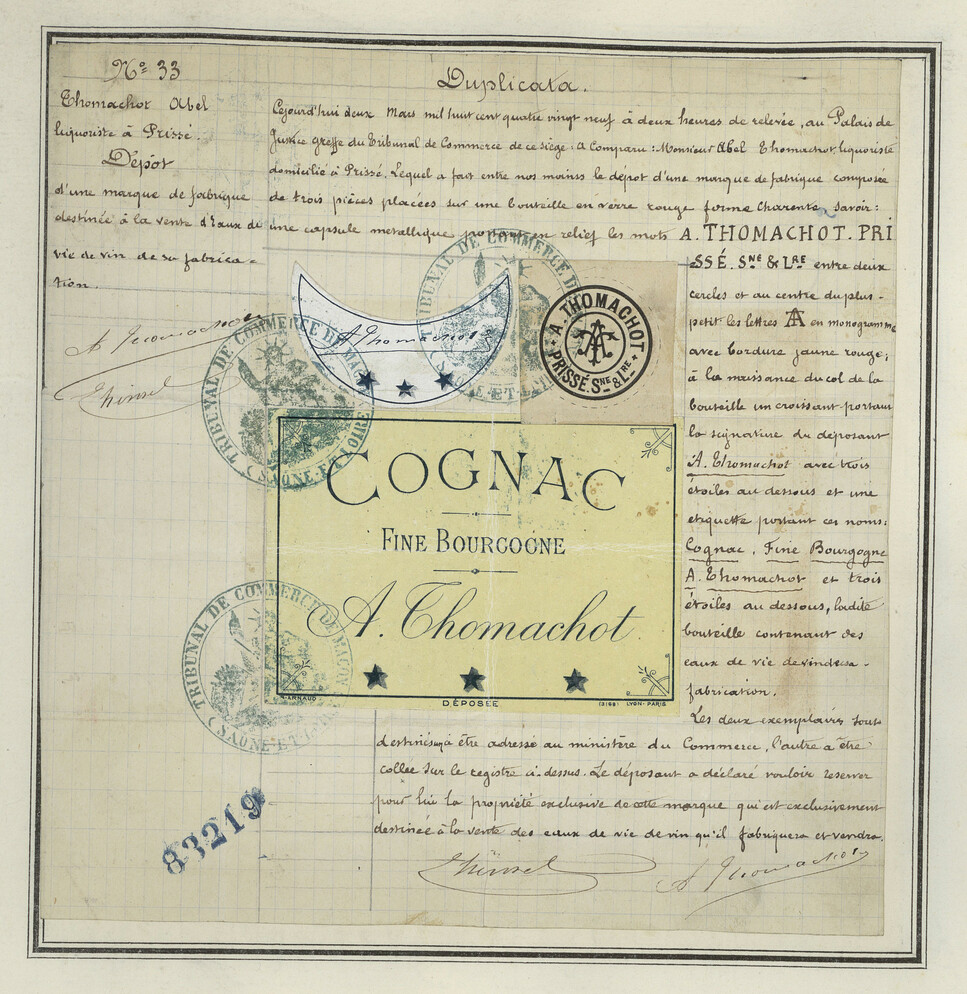 N° 33
Thomachot Abel
liquoriste à Prissé.
Dépôt
d'une marque de fabrique
destinée à la vente d'Eaux de
vie de vin de sa fabrica-
tion.
A Thomachot
Duplicata.
Cejourd'hui deux Mars mil huit cent quatre vingt neuf à deux heures de relevée, au Palais de
Justice greffe du Tribunal de Commerce de ce siège; a Comparu: Monsieur Abel Thomachot, liquoriste
domicilié à Prissé. Lequel a fait entre nos mains le dépôt d'une marque de fabrique composée
de trois pièces placées sur une bouteille en verre rouge forme charente savoir:
une capsule métallique portant en relief les mots A. THOMACHOT. PRI
SSÉ. SNE & LRE entre deux
cercles et au centre du plus-
petit les lettres AT en monogramme
avec bordure jaune rouge;
à la naissance du col de la
bouteille un croissant portant
la signature du déposant
A. Thomachot avec trois
étoiles au dessous et une
etiquette portant ces noms:
Cognac, Fine Bourgogne
A. Thomachot et trois
étoiles au dessous, ladite
bouteille contenant des
eaux de vie de vin de sa-
fabrication.
Les deux exemplaires sont
destinés à être adressé au ministère du Commerce, l'autre à être
collée sur le registre ci-dessus. Le déposant a déclaré vouloir reserver
pour lui la propriété exclusive de cette marque qui est exclusivement
destinée à la vente des eaux de vie de vin qu'il fabriquera et vendra.
A Thomachot
A Thomachot
A. THOMACHOT
PRISSÉ. SNE & LRE
COGNAC
FINE BOURGOGNE
A. Thomachot
DÉPOSÉE
(3198) LYON-PARIS
TRIBUNAL DE COMMERCE DE MACON
SAONE ET LOIRE
TRIBUNAL DE COMMERCE DE
SAONE ET L
TRIBUNAL DE COMMERCE DE MACON
SAONE ET L
83219